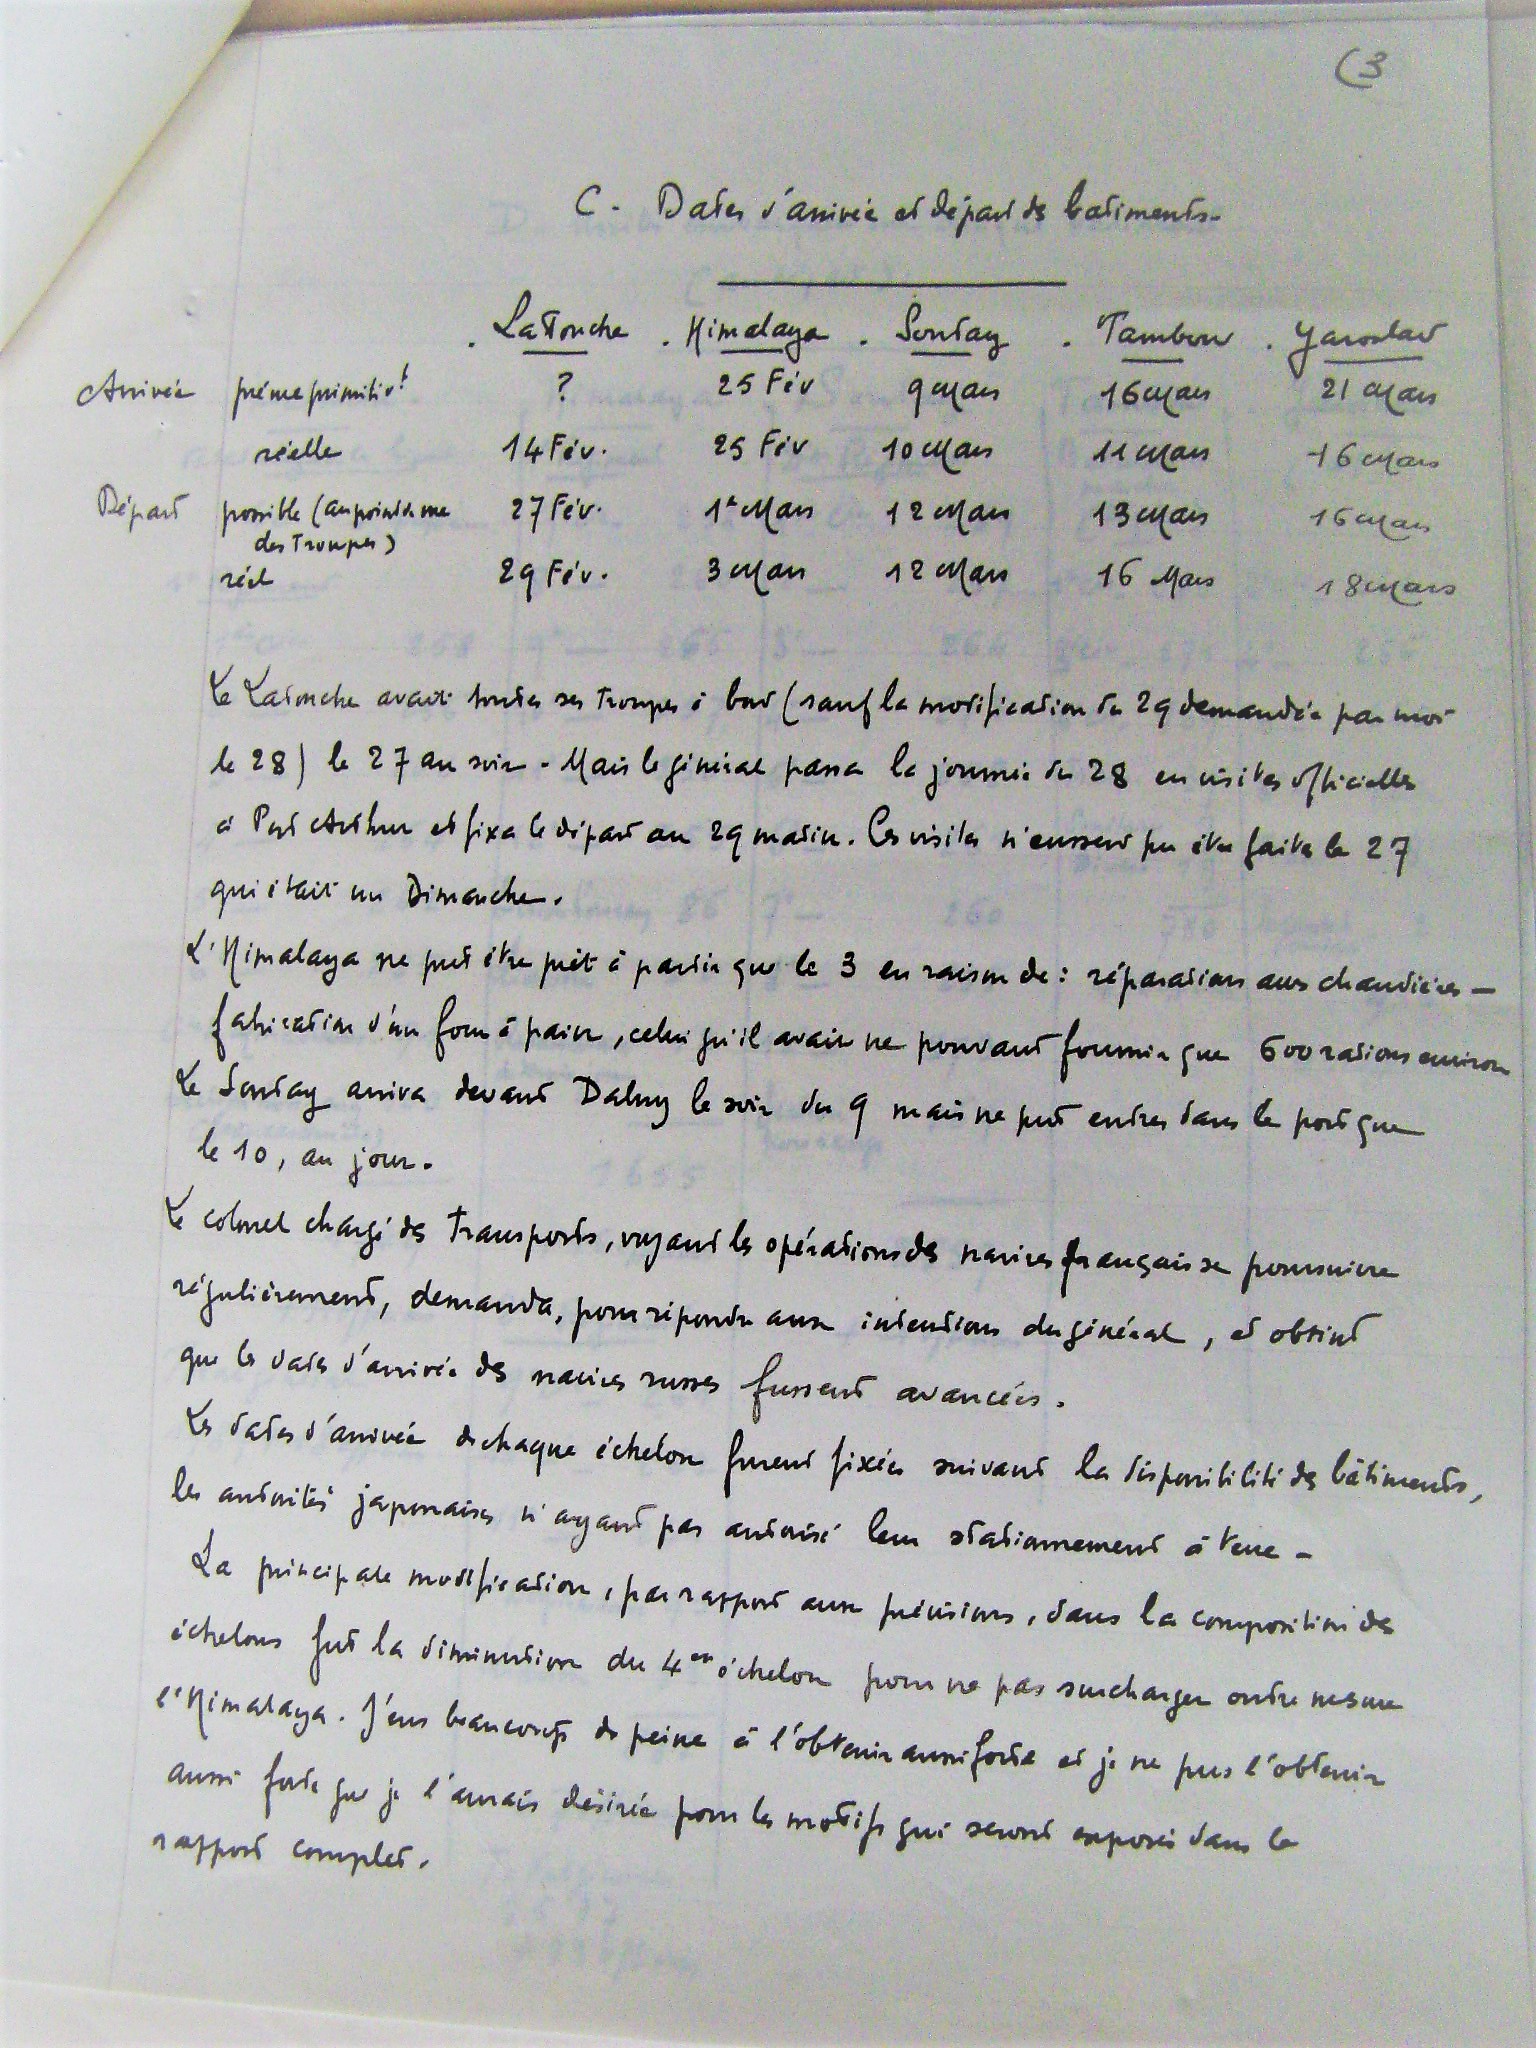 (3
C - Dates d'arrivée et départ des batiments -
. LaTouche . Himalaya . Sontay . Tambow . Yaroslav
Arrivée prévue primitivt ? 25 Fév 9 Mars 16 Mars 21 Mars
réelle 14 Fév. 25 Fév 10 Mars 11 Mars 16 Mars
Départ possible (au point de vue 27 Fév. 1er Mars 12 Mars 13 Mars 16 Mars
des Troupes)
réel 29 Fév. 3 Mars 12 Mars 16 Mars 18 Mars
Le Latouche avait toutes ses troupes à bord (sauf la modification du 29 demandée par moi
le 28) le 27 au soir - Mais le général passa la journée du 28 en visites officielles
à Port Arthur et fixa le départ au 29 matin. Ces visites n'eussent pu être faites le 27
qui était un Dimanche.
L'Himalaya ne put être prêt à partir que le 3 en raison de : réparations aux chaudières -
fabrication d'un four à pain, celui qu'il avait ne pouvant fournir que 600 rations environ
Le Sontay arriva devant Dalny le soir du 9 mais ne put entrer dans le port que
le 10, au jour.
Le colonel chargé des transports, voyant les opérations des navires français se poursuivre
régulièrement, demanda, pour répondre aux intentions du général, et obtint
que les dates d'arrivée des navires russes fussent avancées.
Les dates d'arrivée de chaque échelon furent fixées suivant la disponibilité des bâtiments,
les autorités japonaises n'ayant pas autorisé leur stationnement à terre -
La principale modification, par rapport aux prévisions, dans la composition des
échelons fut la diminution du 4em échelon pour ne pas surcharger outre mesure
l'Himalaya. J'eus beaucoup de peine à l'obtenir aussi forte et je ne pus l'obtenir
aussi forte que je l'aurais désirée pour les motifs qui seront exposés dans le
rapport complet.